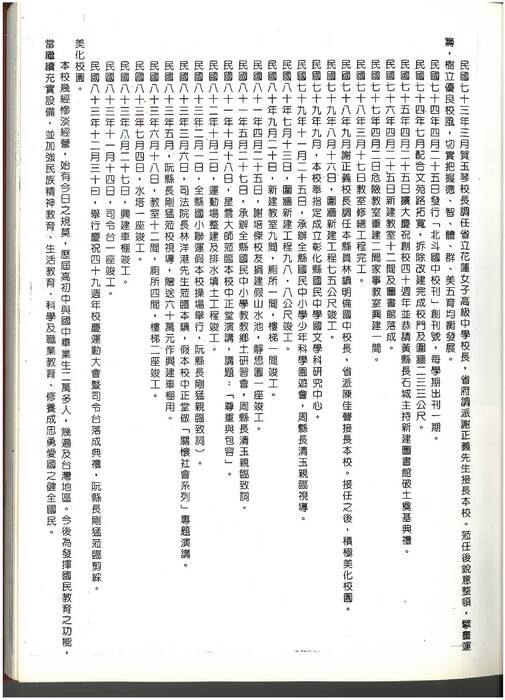 民國七十三年三月賀玉琴校長調任省立花蓮女子高級中學校長，省府調派謝正義先生接長本校。蒞任後銳意整頓，擘畫運
籌，樹立優良校風，切實把握德、智、體、群、美五育均衡發展。
民國七十四年四月二十五日發行「北斗國中校刊」創刊號，每學期出刊一期。
民國七十四年七月配合文苑路拓寬，拆除改建完成校門及圍牆二三三公尺。
民國七十五年四月二十五日擴大慶祝創校四十週年並恭請黃縣長石城主持新建圖書館破土奠基典禮。
民國七十六年四月二十五日新建教室十二間及圖書館落成。
民國七十七年四月二日危險教室重建二間家事教室興建一間。
民國七十八年三月十七日教室修繕工程完工。
民國七十八年九月謝正義校長調任本縣員林鎮明倫國中校長，省派陳佳聲接長本校。接任之後，積極美化校園。
民國七十九年八月十六日，圍牆新建工程七五公尺竣工。
民國七十九年九月，本校奉指定成立彰化縣國民中學國文學科研究中心。
民國七十九年十一月二十五日，承辦全縣國民中小學少年科學園遊會，周縣長清玉親臨視導。
民國八十年七月十三日，圍牆新建工程九八·八公尺竣工。
民國八十年九月二十日，新建教室九間，廁所一間，樓梯一間竣工。
民國八十一年四月二十五日，謝培傑校友捐建假山水池，靜思園一座竣工。
民國八十一年五月二十七日，承辦全縣國民中小學教教鄉土研習會，周縣長清玉親臨致詞。
民國八十一年十月十八日，星雲大師蒞臨本校中正堂演講，講題：「尊重與包容」。
民國八十一年十二月，運動場整建及排水填土工程竣工。
民國八十三年二月一日，全縣國小聯運假本校操場舉行，阮縣長剛猛親臨致詞）。
民國八十三年三月六日，司法院長林洋港先生蒞臨本鎮，假本校中正堂做「關懷社會系列」專題演講。
民國八十三年五月，阮縣長剛猛蒞校視導，贈送六十萬元作興建車棚用。
民國八十三年六月十八日，教室十二間，廁所四間，樓梯二座竣工。
民國八十三年七月四日，水塔一座竣工。
民國八十三年八月二十七日，興建車棚竣工。
民國八十三年十一月十四日，司令台一座竣工。
民國八十三年十二月三十日，舉行慶祝四十九週年校慶運動大會暨司令台落成典禮，阮縣長剛猛蒞臨剪綵。
美化校園。
本校幾經慘淡經營，始有今日之規模，歷屆高初中與國中畢業生二萬多人，幾遍及台灣地區。今後為發揮國民教育之功能，
當繼續充實設備，並加強民族精神教育、生活教育、科學及職業教育、修養成忠勇愛國之健全國民。